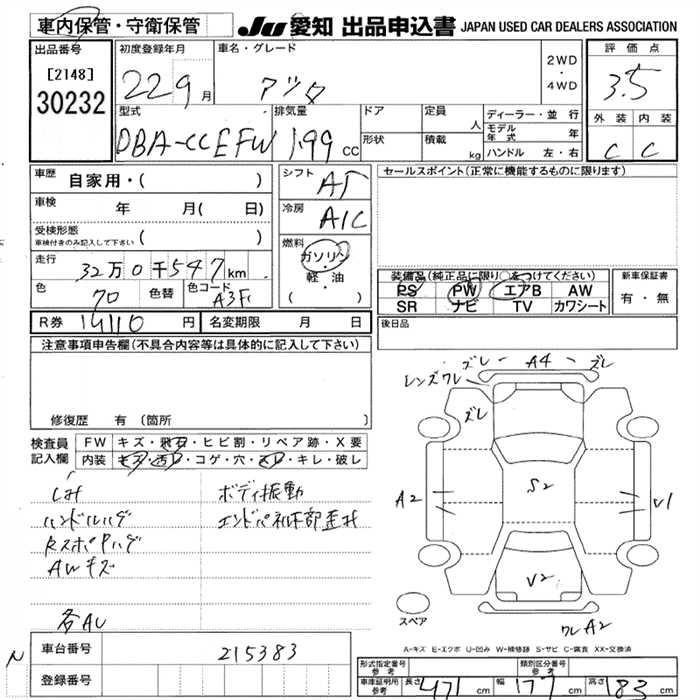 車内保管・守衛保管 JU 愛知 出品申込書 JAPAN USED CAR DEALERS ASSOCIATION
出品番号 初度登録年月 車名・グレード 評価点
[2148] 2WD
・
30232 22 9月 4WD 3.5
型式 排気量 ドア 定員 人 ディーラー・並行 外装 内装
モデル年式 年
DBA-CCEFW 1.99cc 形状 積載 kg ハンドル 左・右 C C
車歴 自家用・( ) シフト AT セールスポイント(正常に機能するものに限ります)
車検 年 月( 日) 冷房 A/C
受検形態
車検付きのみ記入して下さい ( ) 燃料 ガソリン
・
軽・油
( )
走行 32万0千547km 装備品(純正品に限り○をつけてください) 新車保証書
色 70 色替 色コード PS PW エアB AW 有・無
SR ナビ TV カワシート
R券 14110円 名変期限 月 日 後日品
注意事項申告欄(不具合内容等は具体的に記入して下さい)
ズレ A4 ズレ
レンズワレ
ズレ
修復歴 有(箇所
検査員記入欄 FW キズ・飛石・ヒビ割・リペア跡・X要
内装 キズ・汚レ・コゲ・穴・スレ・キレ・破レ
ボディ振動
ハンドルハゲ
AWキズ
A2 S2 V1
V2
各AU スペア ワレA2
A-キズ E-エクボ U-凹み W-補修跡 S-サビ C-腐食 XX-交換済
N 車台番号 215383
登録番号 形式指定番号 参考 類別区分番号 参考
車庫証明用 参考 長さ 471cm 幅 177cm 高さ 183cm